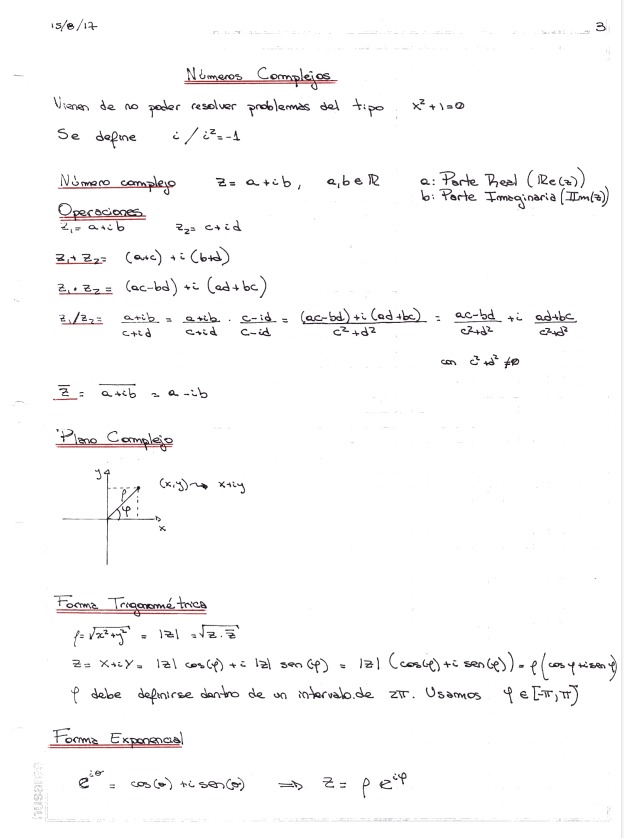 15/8/17
3
Números Complejos
Vienen de no poder resolver problemas del tipo x²+1=0
Se define i / i²=-1
Número complejo z= a+ib, a,b ∈ ℝ a: Parte Real (ℝe(z))
b: Parte Imaginaria (𝕀m(z))
Operaciones
z₁= a+ib z₂= c+id
z₁+z₂= (a+c) + i(b+d)
z₁·z₂ = (ac-bd) + i(ad+bc)
z₁/z₂= (a+ib)/(c+id) = (a+ib)/(c+id) · (c-id)/(c-id) = ((ac-bd)+i(ad+bc))/(c²+d²) = (ac-bd)/(c²+d²) + i (ad+bc)/(c²+d²)
con c²+d² ≠0
z̅ = \overline{a+ib} = a-ib
Plano Complejo
y
ρ
φ
(x,y) ⇝ x+iy
x
Forma Trigonométrica
ρ=√(x²+y²) = |z| = √(z·z̅)
z= x+iy= |z| cos(φ) + i |z| sen(φ) = |z| (cos(φ)+i sen(φ)) = ρ(cosφ+isenφ)
φ debe definirse dentro de un intervalo de 2π. Usamos φ∈[-π,π)
Forma Exponencial
e^{iθ} = cos(θ) +i sen(θ) ⟹ z= ρ e^{iφ}
husares